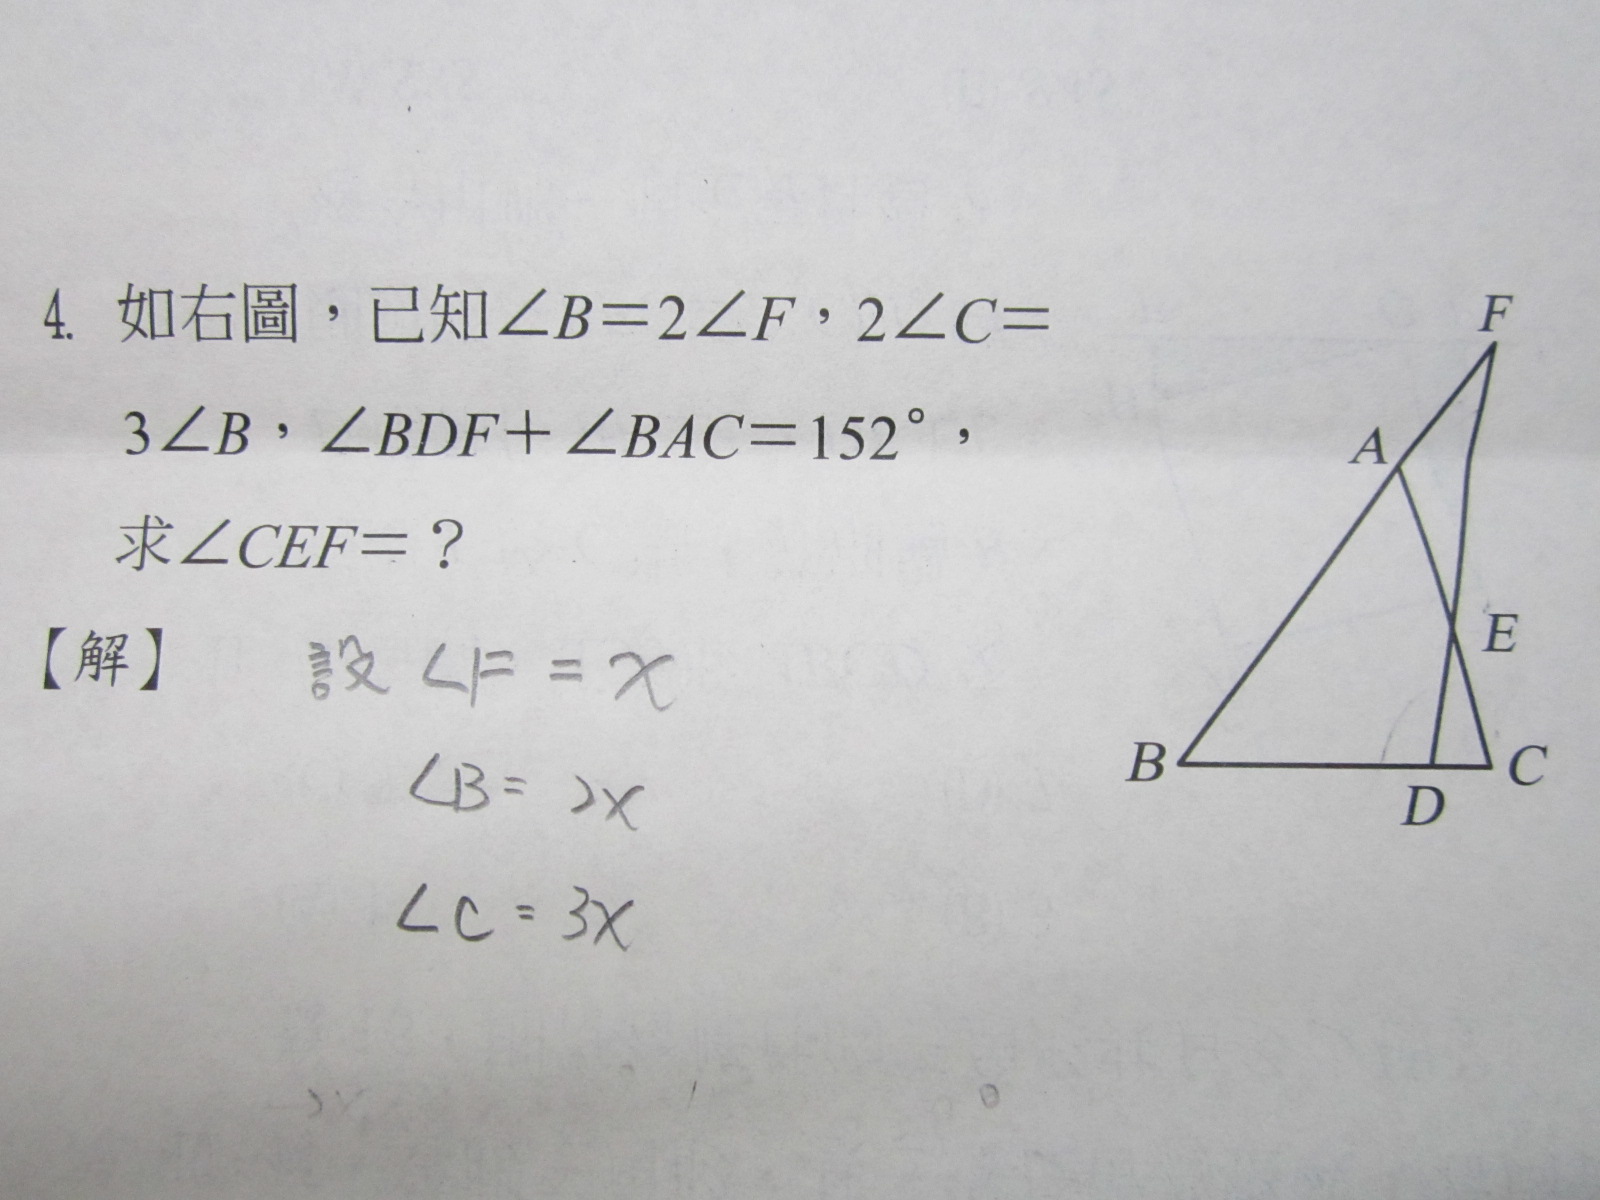 4. 如右圖，已知∠B＝2∠F，2∠C＝
3∠B，∠BDF＋∠BAC＝152°，
求∠CEF＝？
【解】 設 ∠F = x
∠B = 2x
∠C = 3x
F
A
E
B
C
D